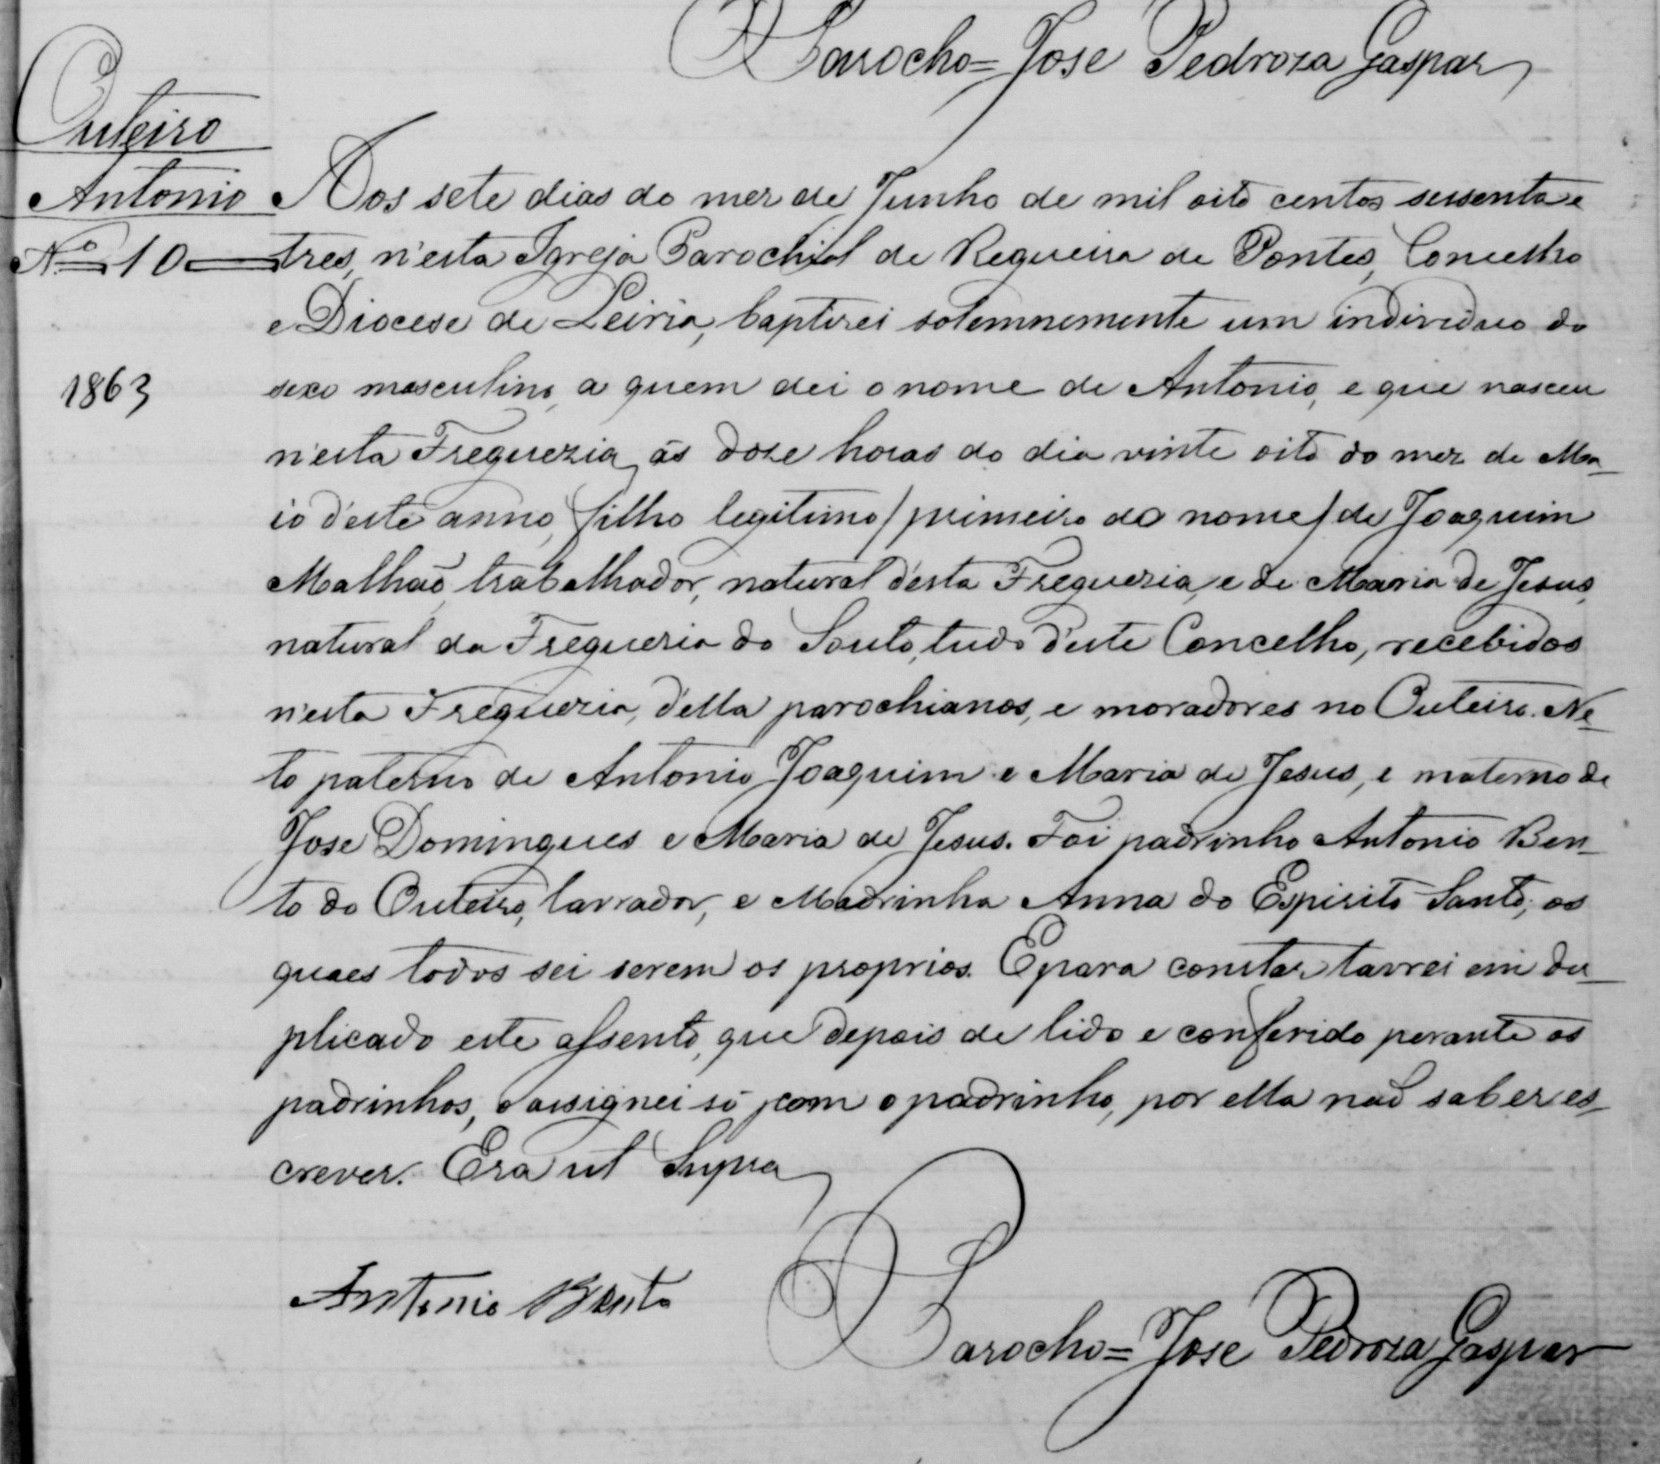 Parocho= Jose Pedroza Gaspar
Outeiro
Antonio
Nº 10
1863
Aos sete dias do mez de Junho de mil oito centos sessenta e
tres, n'esta Igreja Parochial de Regueira de Pontes, Concelho
e Diocese de Leiria, baptizei solemnemente um individuo do
sexo masculino, a quem dei o nome de Antonio, e que nasceu
n'esta Freguezia, ás doze horas do dia vinte oito do mez de Ma-
io d'este anno, filho legitimo / primeiro do nome / de Joaquim
Malhaõ, trabalhador, natural d'esta Freguezia, e de Maria de Jesus,
natural da Freguezia do Souto, tudo d'este Concelho, recebidos
n'esta Freguezia, d'ella parochianos, e moradores no Outeiro. Ne-
to paterno de Antonio Joaquim e Maria de Jesus, e materno de
Jose Domingues e Maria de Jesus. Foi padrinho Antonio Ben-
to do Outeiro, lavrador, e Madrinha Anna do Espirito Santo, os
quaes todos sei serem os proprios. E para constar lavrei em du-
plicado este assento, que depois de lido e conferido perante os
padrinhos, o assignei só com o padrinho, por ella naõ saber es-
crever. Era ut Supra
Antonio Bento
Parocho= Jose Pedroza Gaspar